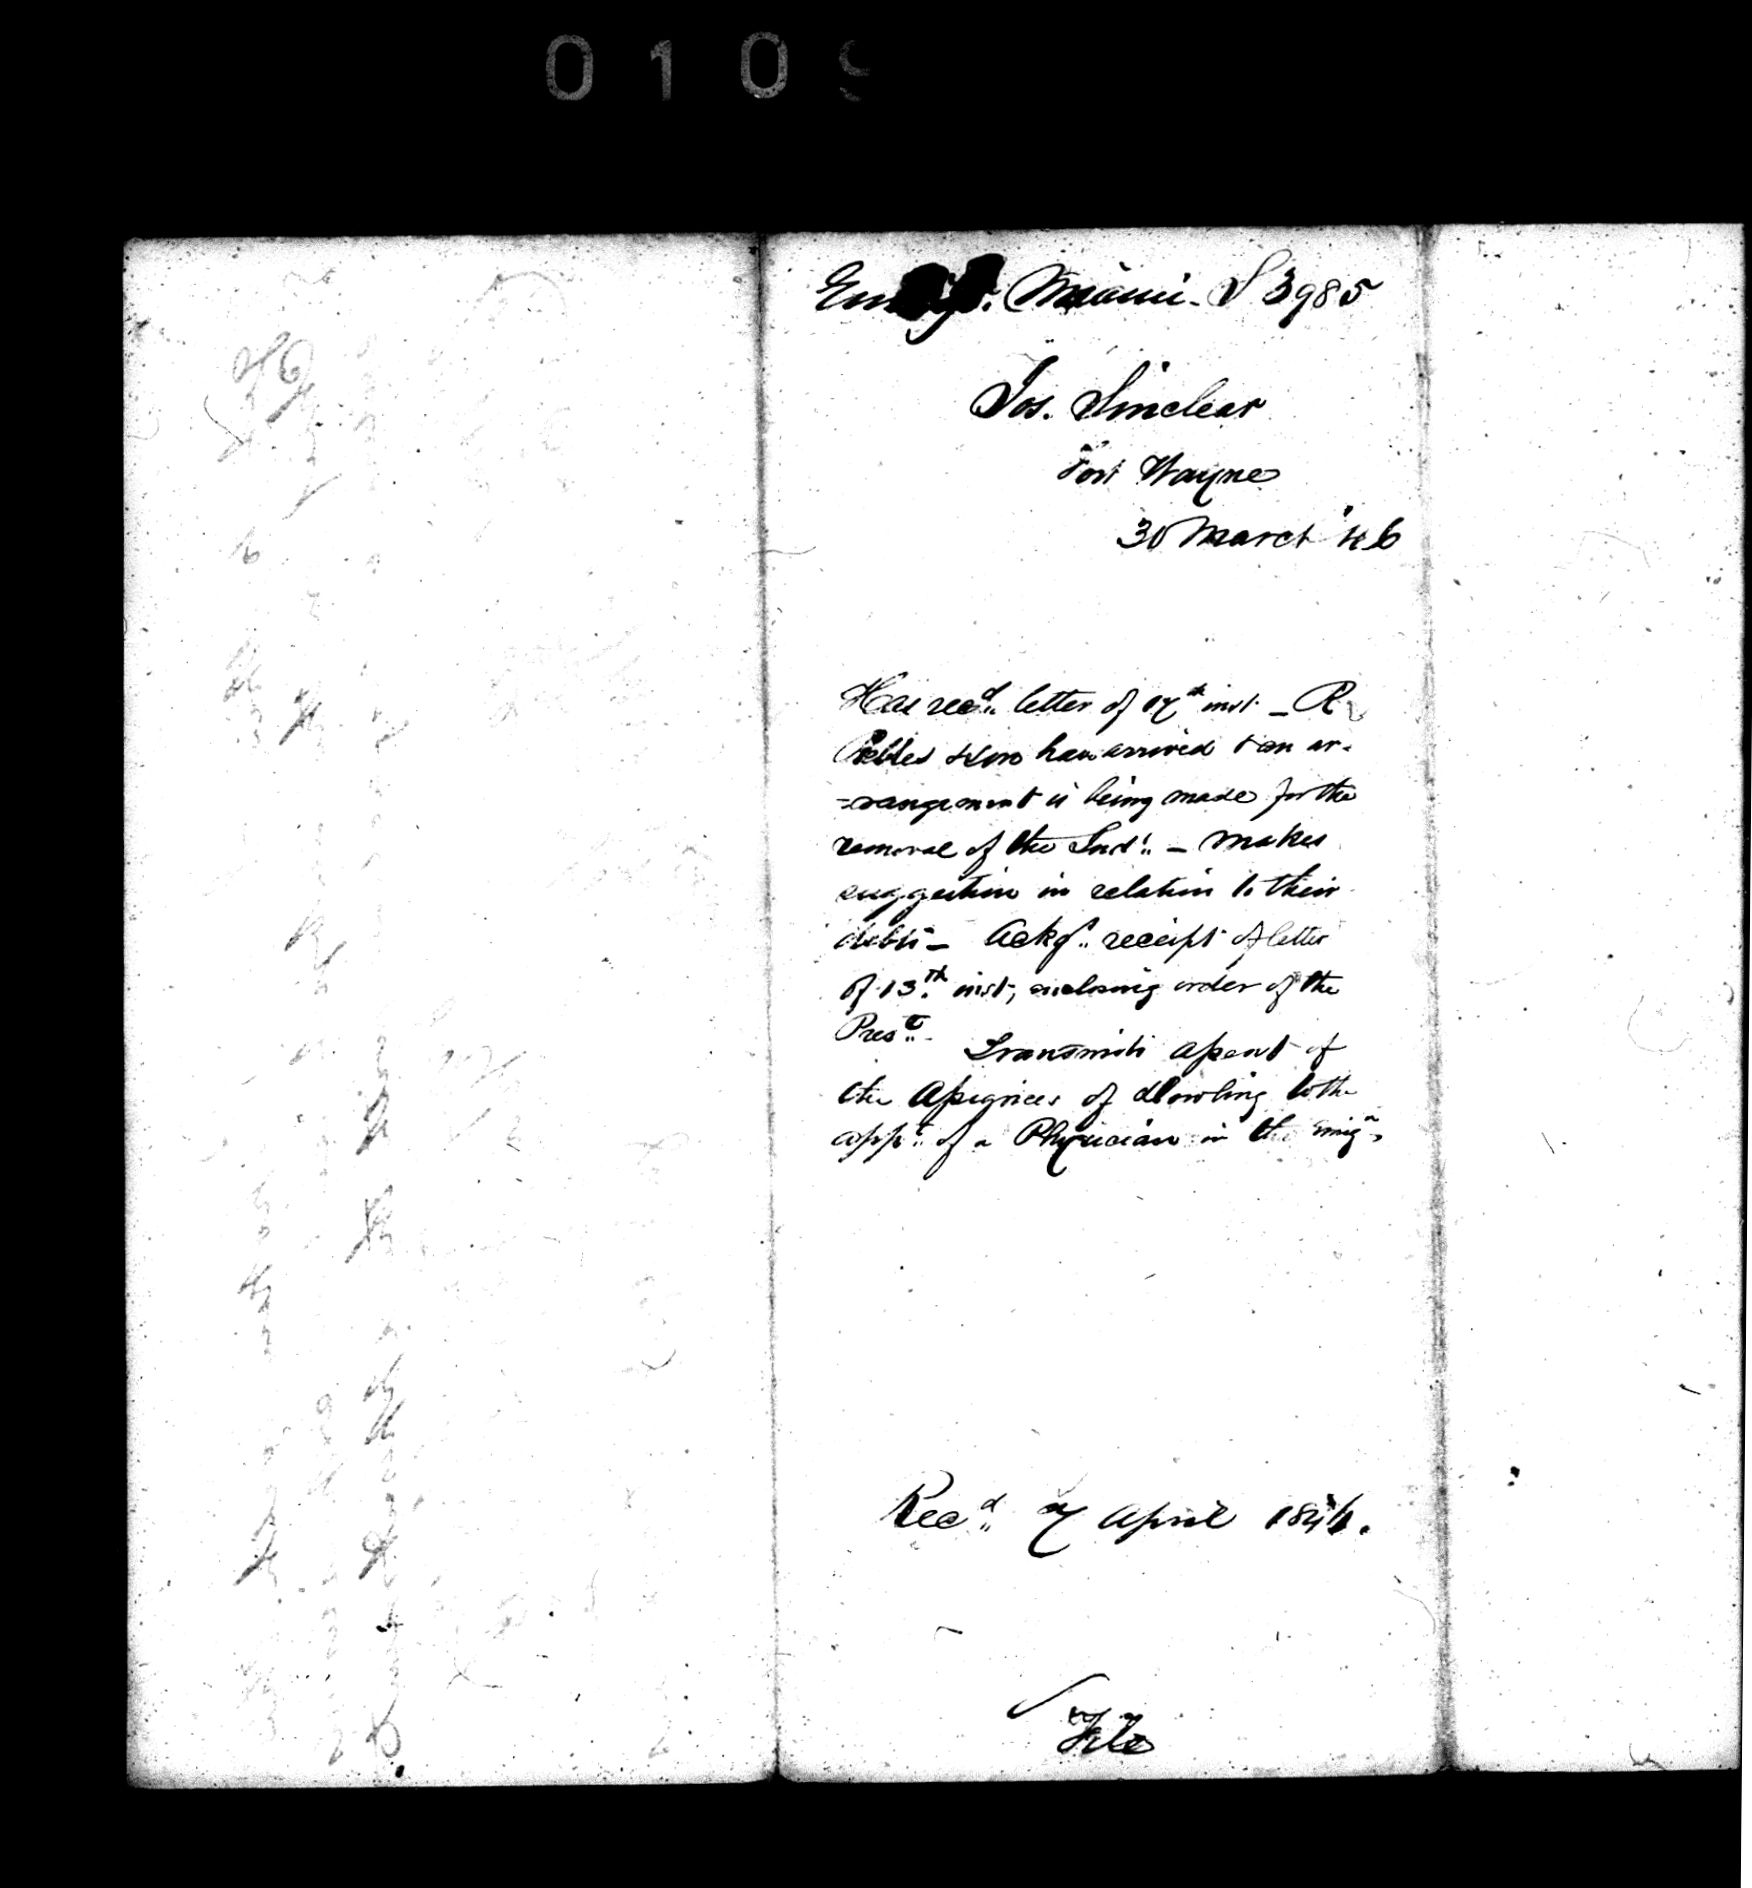 0109
Emigr. Miami. S 3985
Jos. Sinclear
Fort Wayne
30 March '46
Has recd. letter of 17th inst. – R
Peebles & son have arrived & an ar-
=rangement is being made for the
removal of the Inds. – makes
suggestion in relation to their
debts – Ackgs. receipt of letter
of 13th inst, enclosing order of the
Prest.
Transmits assent of
the Assignees of Dowling to the
appt. of a Physician in the emign.
Recd. 7 April 1846.
File